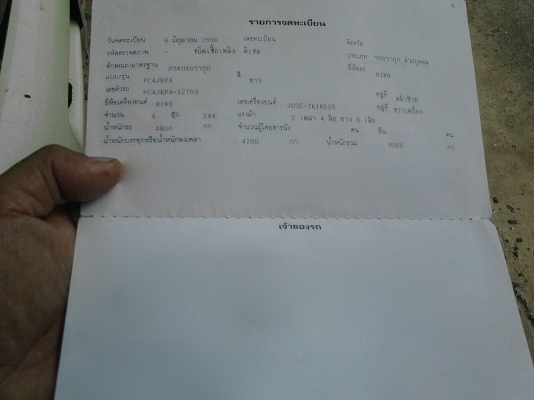 รายการจดทะเบียน
วันจดทะเบียน 6 มิถุนายน 2550 เลขทะเบียน จังหวัด
รหัสตรวจสภาพ - ชนิดเชื้อเพลิง ดีเซล ประเภท รถบรรทุก ส่วนบุคคล
ลักษณะ/มาตรฐาน กระบะบรรทุก ยี่ห้อรถ HINO
แบบ/รุ่น FC4JEPA สี ขาว
เลขตัวรถ FC4JEPA-12703 อยู่ที่
ยี่ห้อเครื่องยนต์ HINO เลขเครื่องยนต์ อยู่ที่ ขวาเครื่อง
จำนวน 4 สูบ 149 แรงม้า 2 เพลา 4 ล้อ ยาง 6 เส้น
น้ำหนักรถ 4800 กก. จำนวนผู้โดยสารนั่ง คน ยืน คน
น้ำหนักบรรทุกหรือน้ำหนักลงเพลา 4700 กก. น้ำหนักรวม 9500 กก.
เจ้าของรถ